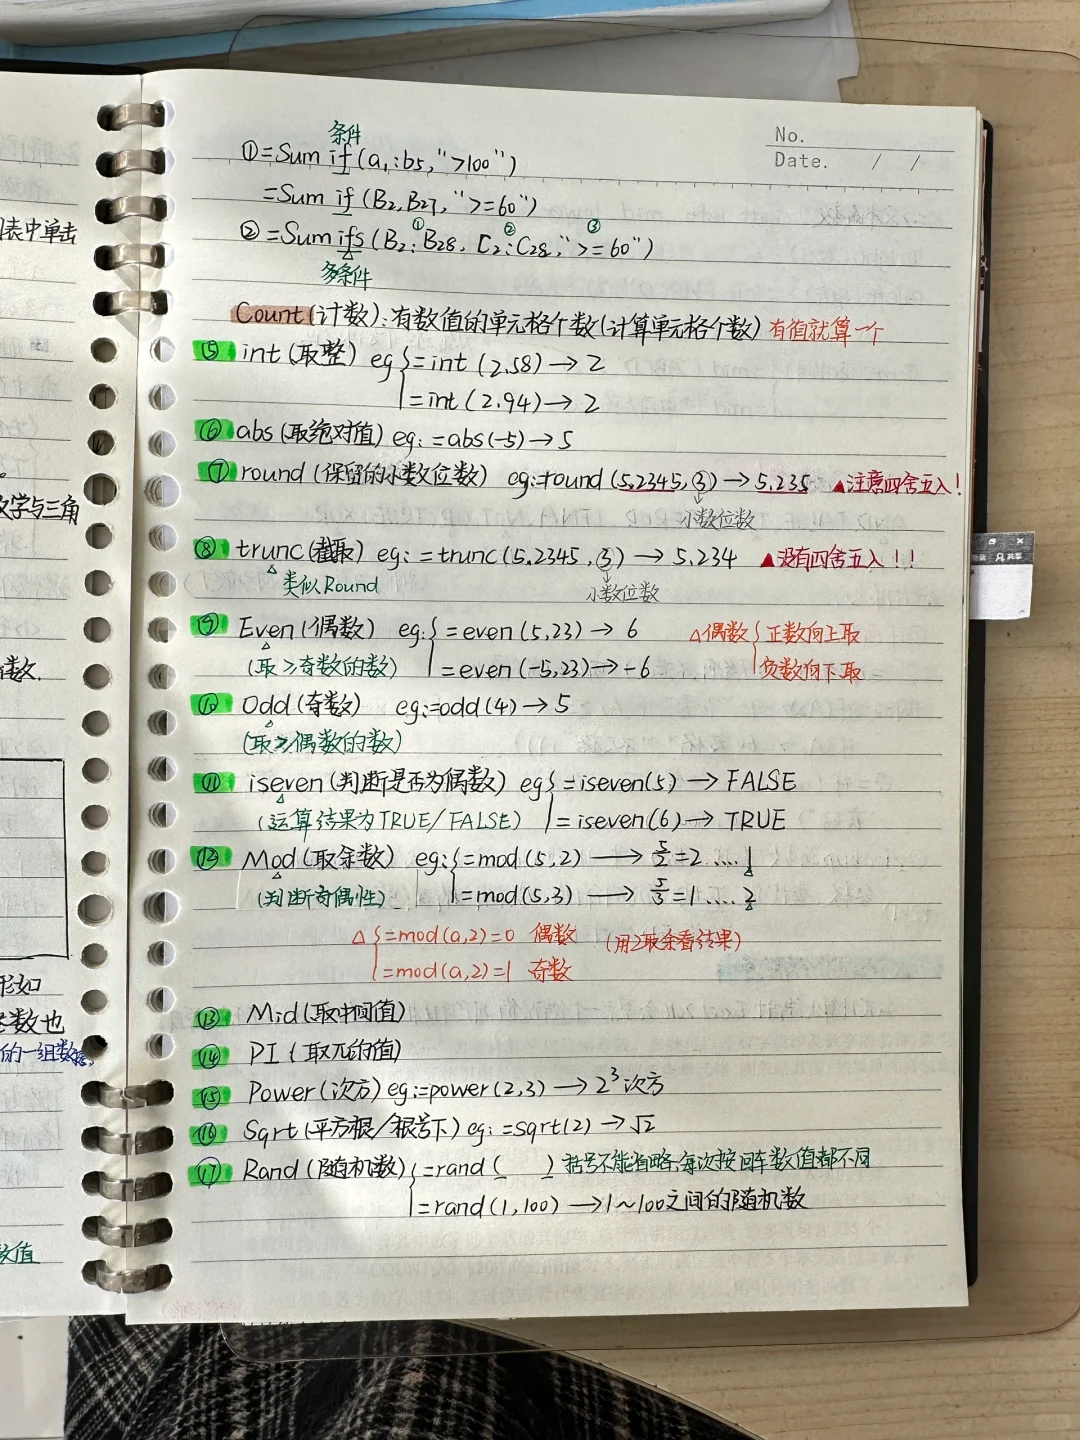 表中单击
文学与三角
数.
形如
数也
的一组数据,
数值
No.
Date. / /
条件
①=Sum if(a1:b5,">100")
=Sum if(B2,B27,">=60")
① ② ③
②=Sum ifs(B2:B28, C2:C28,">=60")
多条件
Count(计数):有数值的单元格个数(计算单元格个数) 有值就算一个
⑤ int(取整) eg{=int(2.58)→2
=int(2.94)→2
⑥ abs(取绝对值) eg:=abs(-5)→5
⑦ round(保留的小数位数) eg:=round(5.2345,③)→5.235 ▲注意四舍五入!
小数位数
⑧ trunc(截取) eg:=trunc(5.2345,③)→5.234 ▲没有四舍五入!!
△ 类似Round 小数位数
⑨ Even(偶数) eg:{=even(5,23)→6 △偶数{正数向上取
(取≥奇数的数) =even(-5,23)→-6 负数向下取
⑩ Odd(奇数) eg:=odd(4)→5
(取≥偶数的数)
⑪ iseven(判断是否为偶数) eg{=iseven(5)→FALSE
(运算结果为TRUE/FALSE) =iseven(6)→TRUE
⑫ Mod(取余数) eg:{=mod(5,2)→5/2=2....1
(判断奇偶性) =mod(5,3)→5/3=1....2
△{=mod(a,2)=0 偶数 (用2取余看结果)
=mod(a,2)=1 奇数
⑬ Mid(取中间值)
⑭ PI(取π的值)
⑮ Power(次方) eg:=power(2,3)→2³次方
⑯ Sqrt(平方根/根号下) eg:=sqrt(2)→√2
⑰ Rand(随机数){=rand( ) 括号不能省略,每次按回车数值都不同
=rand(1,100)→1~100之间的随机数